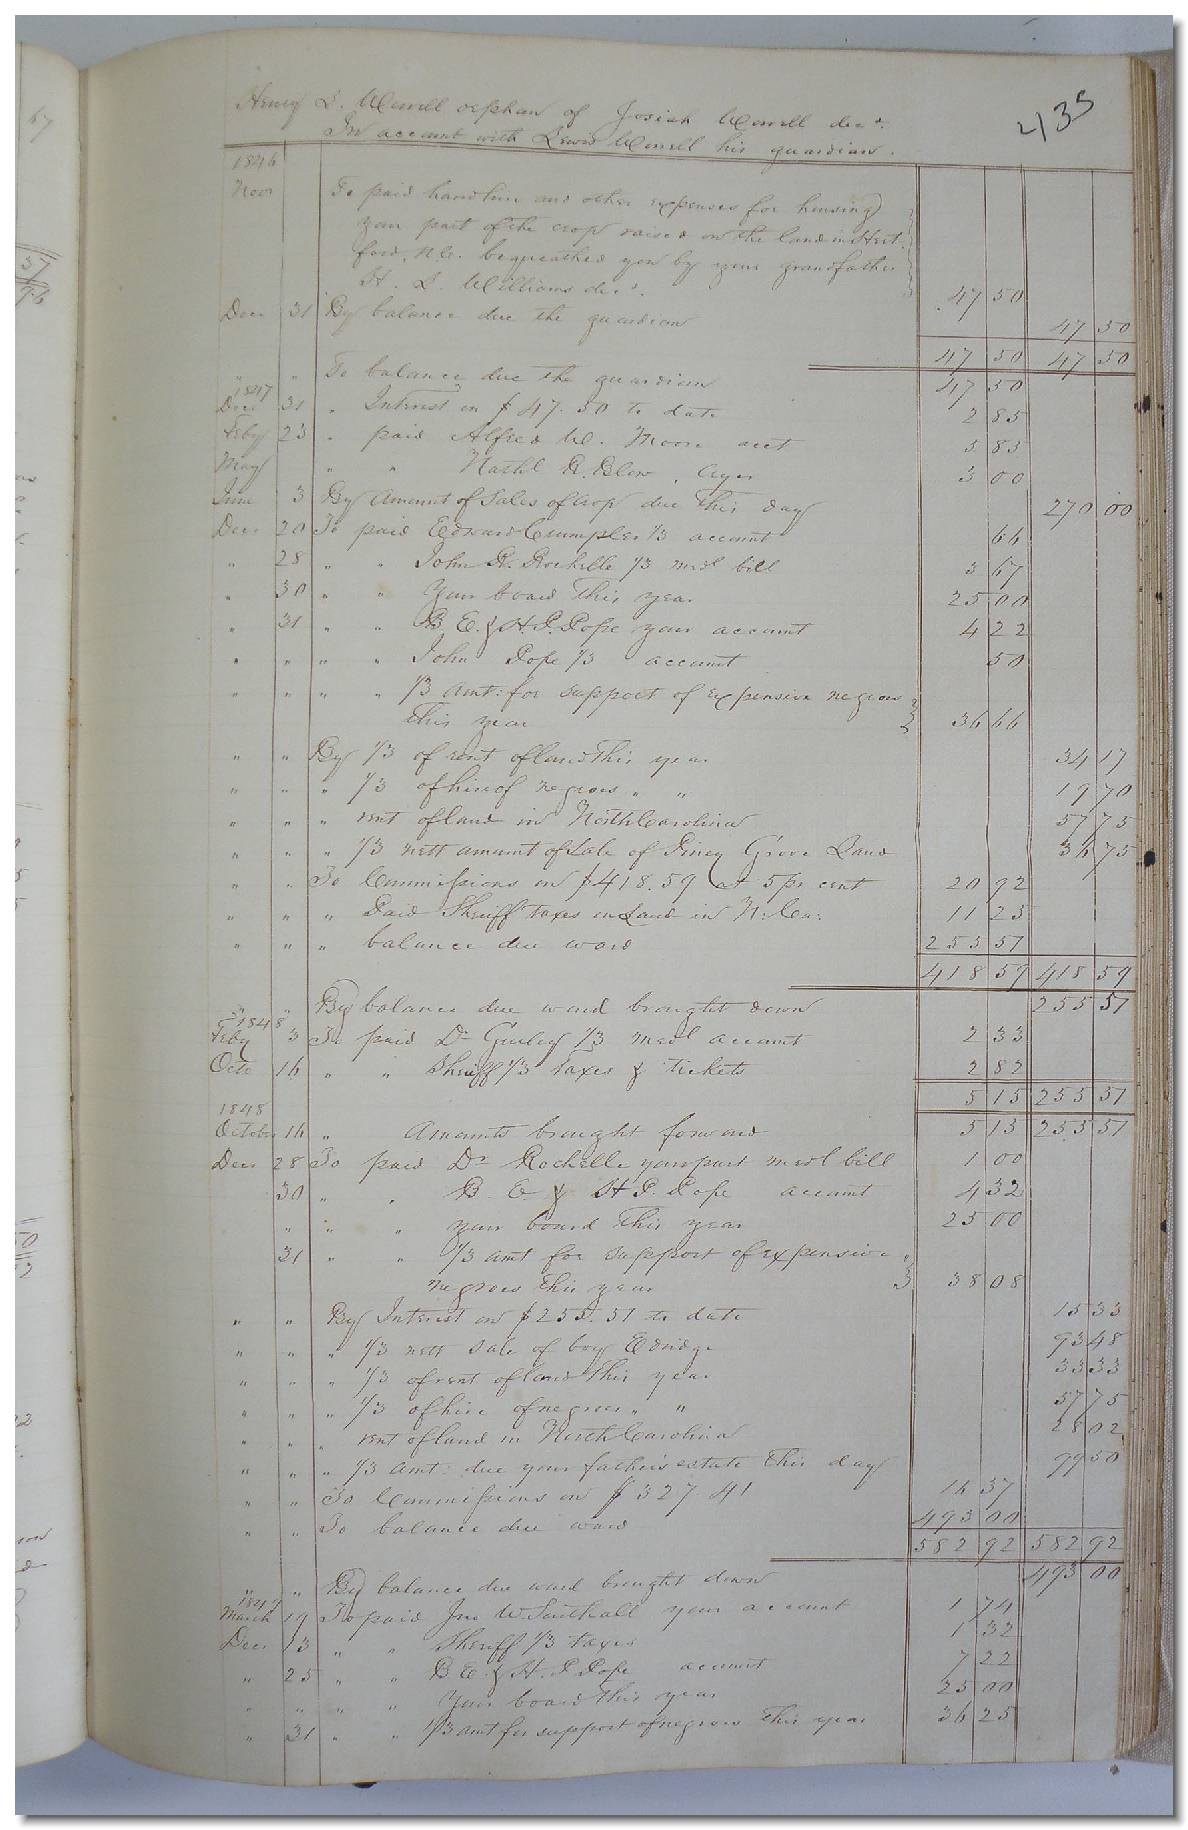 435
Henry L. Worrell orphan of Josiah Worrell decd.
In account with Lewis Worrell his guardian.
1846
Novr To paid hand hire and other expenses for housing
your part of the crop raised on the land in Hert-
ford, N.C. bequeathed you by your grandfather
H. L. Williams decd. 47 50
Decr 31 By balance due the guardian 47 50
47 50 47 50
" " To balance due the guardian 47 50
1847
Decr 31 " Interest on $47.50 to date 2 85
Feby 23 " paid Alfred W. Moore acct 5 85
May " " Nathl R. Blow, 3 00
June 3 By Amount of Sales of Crop due This day 270 00
Decr 20 To paid Edward Crumpler 1/3 account 66
" 28 " " John R. Rochelle 1/3 medl bill 3 67
" 30 " " Your board This year 25 00
" 31 " " B. E. & H. P. Pope your account 4 22
" " " " John Pope 1/3 account 50
" " " " 1/3 Amt: for support of expensive negroes
This year 36 66
" " By 1/3 of rent of land This year 34 17
" " " 1/3 of hire of negroes " " 19 70
" " " rent of land in North Carolina 57 75
" " " 1/3 nett amount of Sale of Piney Grove Land 36 75
" " To Commissions on $418.59 at 5 pr cent 20 92
" " " Paid Sheriff taxes on Land in N. Ca: 11 25
" " " balance due ward 255 51
418 59 418 59
" " By balance due ward brought down 255 51
1848
Feby 3 To paid Dr Gurley 1/3 medl account 2 33
Octr 16 " " Sheriff 1/3 Taxes & tickets 2 82
5 15 255 51
1848
October 16 " Amounts brought forward 5 15 255 51
Decr 28 To paid Dr Rochelle your part medl bill 1 00
30 " " B. E. & H. P. Pope account 4 32
" " " your board This year 25 00
31 " " 1/3 amt for support of expensive
negroes this year 38 08
" " By Interest on $255.51 to date 15 33
" " " 1/3 nett sale of boy Edridge 93 48
" " " 1/3 of rent of land this year 33 33
" " " 1/3 of hire of negroes " " 57 75
" " " rent of land in North Carolina 28 02
" " " 1/3 Amt: due your father's estate This day 99 50
" " To Commissions on $327.41 16 37
" " To balance due ward 493 00
582 92 582 92
" " By balance due ward brought down 493 00
1849
March 19 To paid Jno W. Southall your account 1 74
Decr 13 " " Sheriff 1/3 taxes 1 32
" 25 " " B E. & H. P. Pope account 7 22
" " " " Your board this year 25 00
" 31 " " 1/3 amt for support of negroes This year 36 25